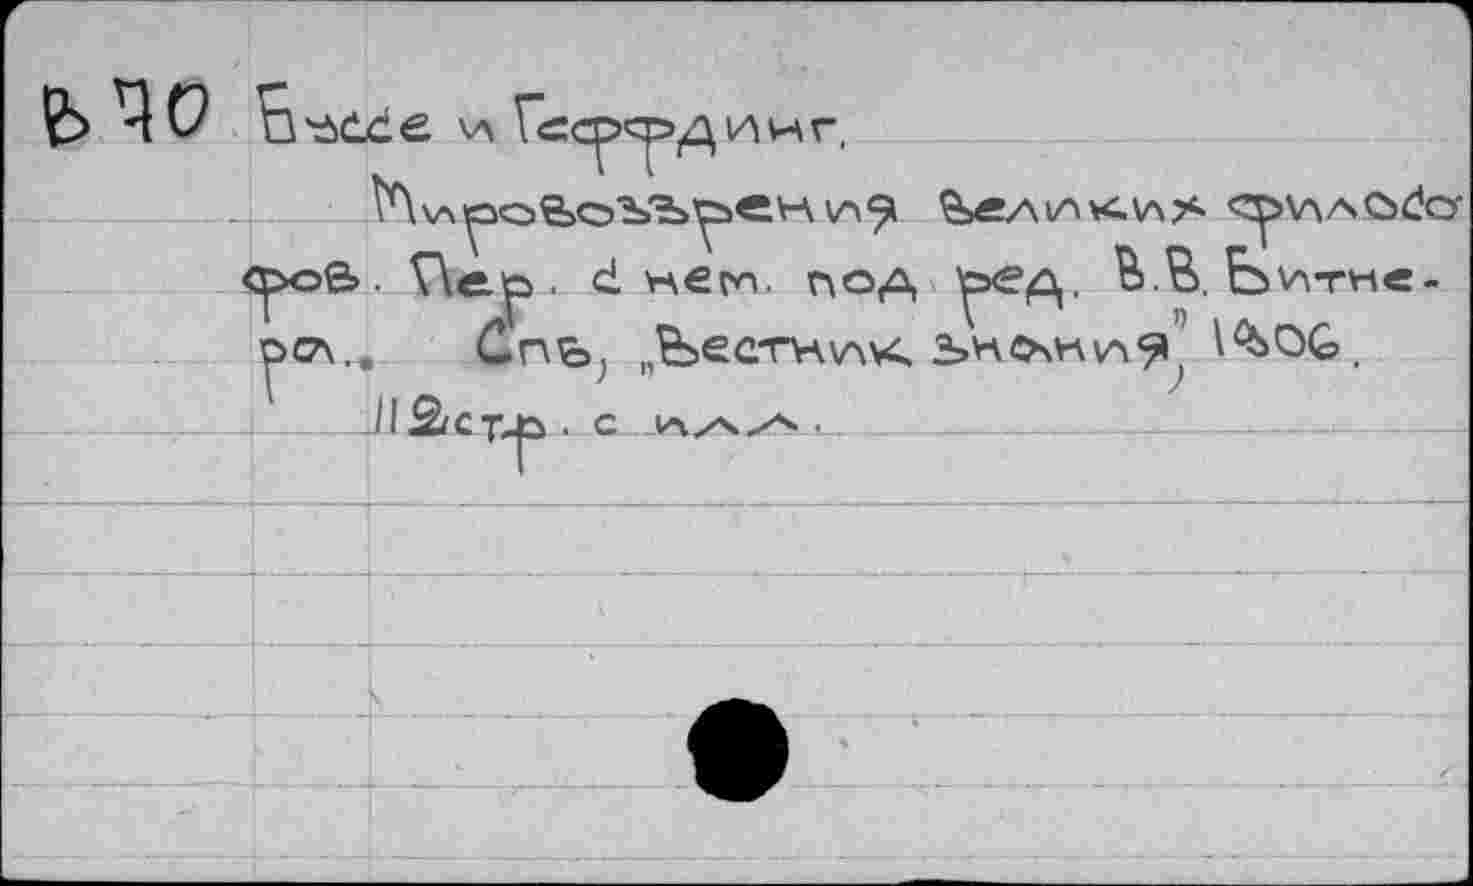 В 40 Бассе и Геффдинг.
Мировоззрения великих филосо-
фов. Пер. с нем. под ред. В.В. Битне-
ра. Спб, „Вестник знания", 1906.
112 стр. с илл.